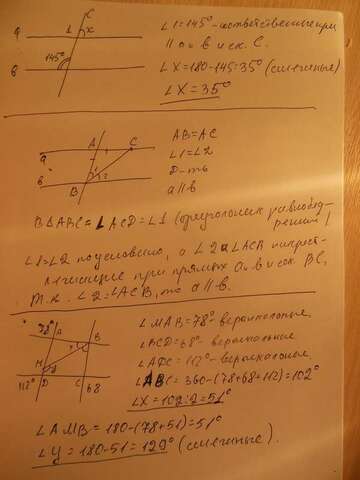 C
a 1 x
∠1=145° - соответственные при
145°
в
|| a и в и ск. C.
∠X=180-145=35° (смежные)
∠X=35°
A C
a
в 1 2
B
AB=AC
∠1=∠2
D-ть
a||в
В ΔABC= ∠ACD=∠1 (треугольник равнобед-
ренный)
∠1=∠2 по условию, а ∠2 и ∠ACB накрест-
лежащие при прямых a и в и сек. BC,
т.к. ∠2=∠ACB, то a||в.
78° A
B
M
112° D C 68
∠MAB=78° - вертикальные,
∠BCD=68° - вертикальные
∠ADC=112° - вертикальные
∠ABC=360-(78+68+112)=102°
∠X=102:2=51°
∠AMB=180-(78+51)=51°
∠Y=180-51=129° (смежные).